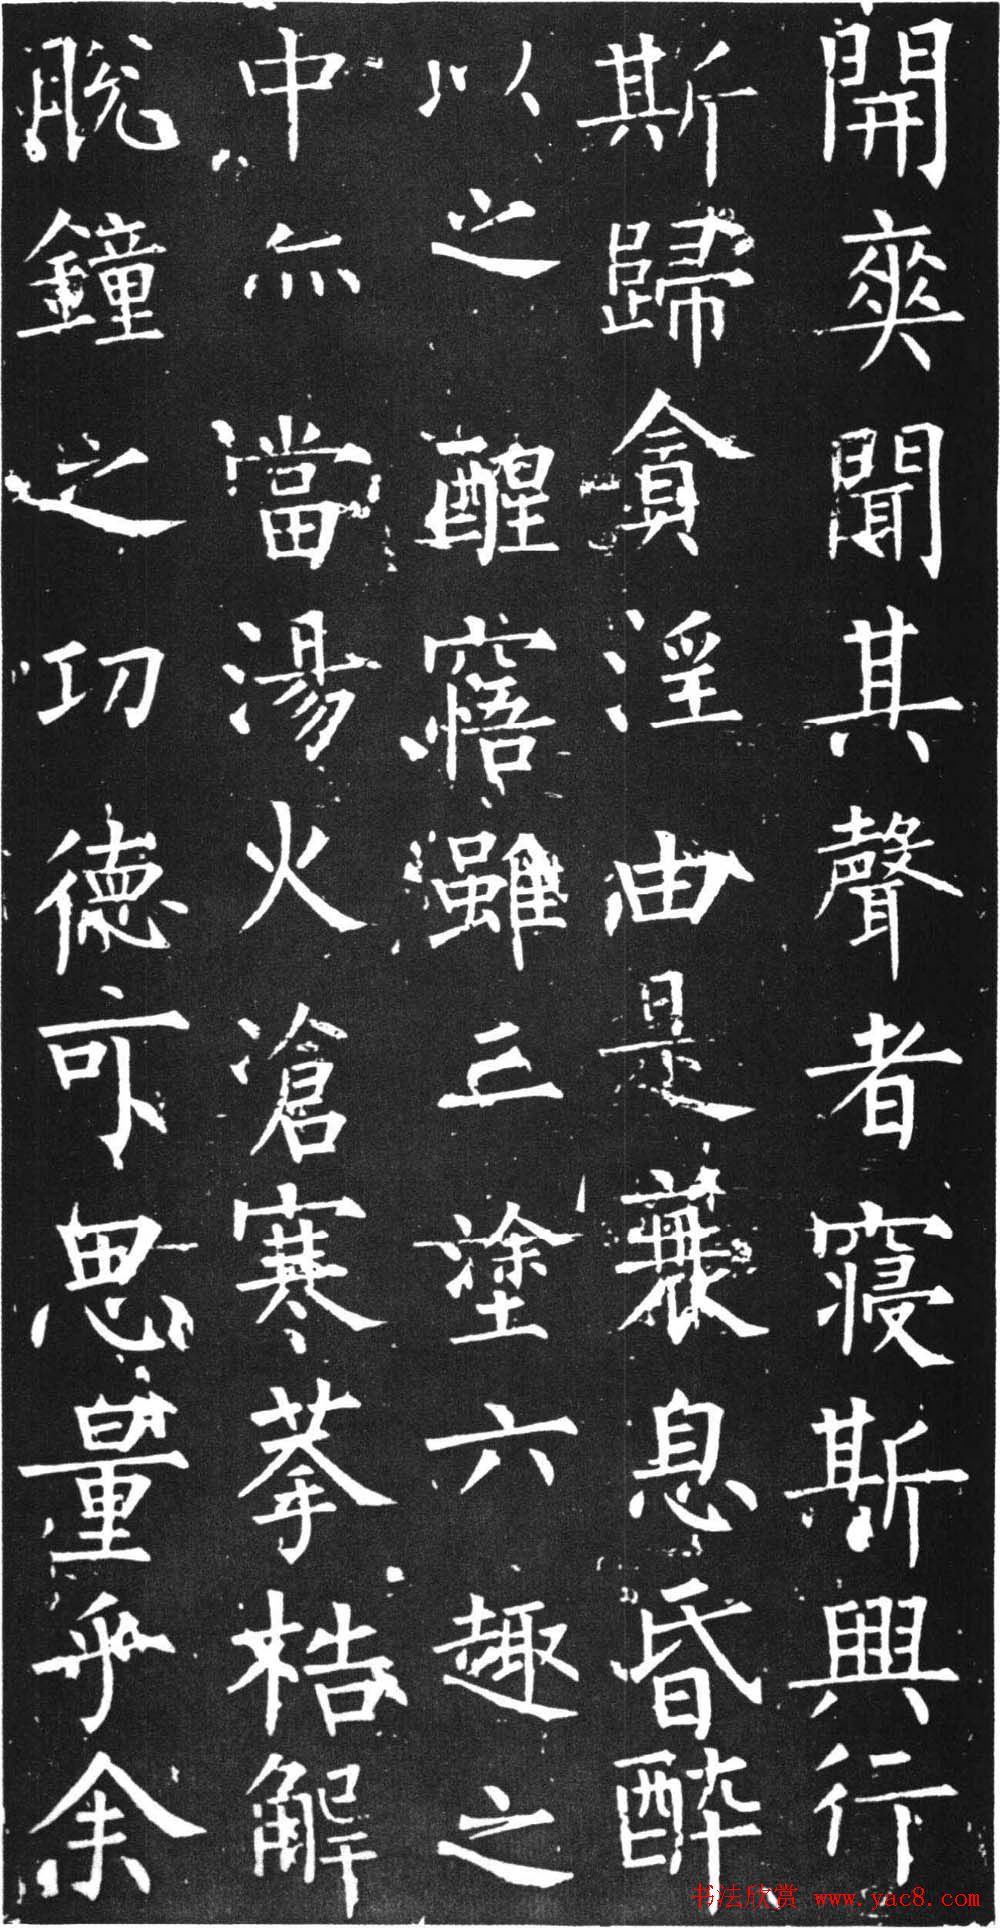 開爽聞其聲者寢斯興行
斯歸貪淫由是衰息昏醉
以之醒寤雖三塗六趣之
中亦當湯火滄寒拲梏解
脫鐘之功德可思量乎余
书法欣赏 www.yac8.com